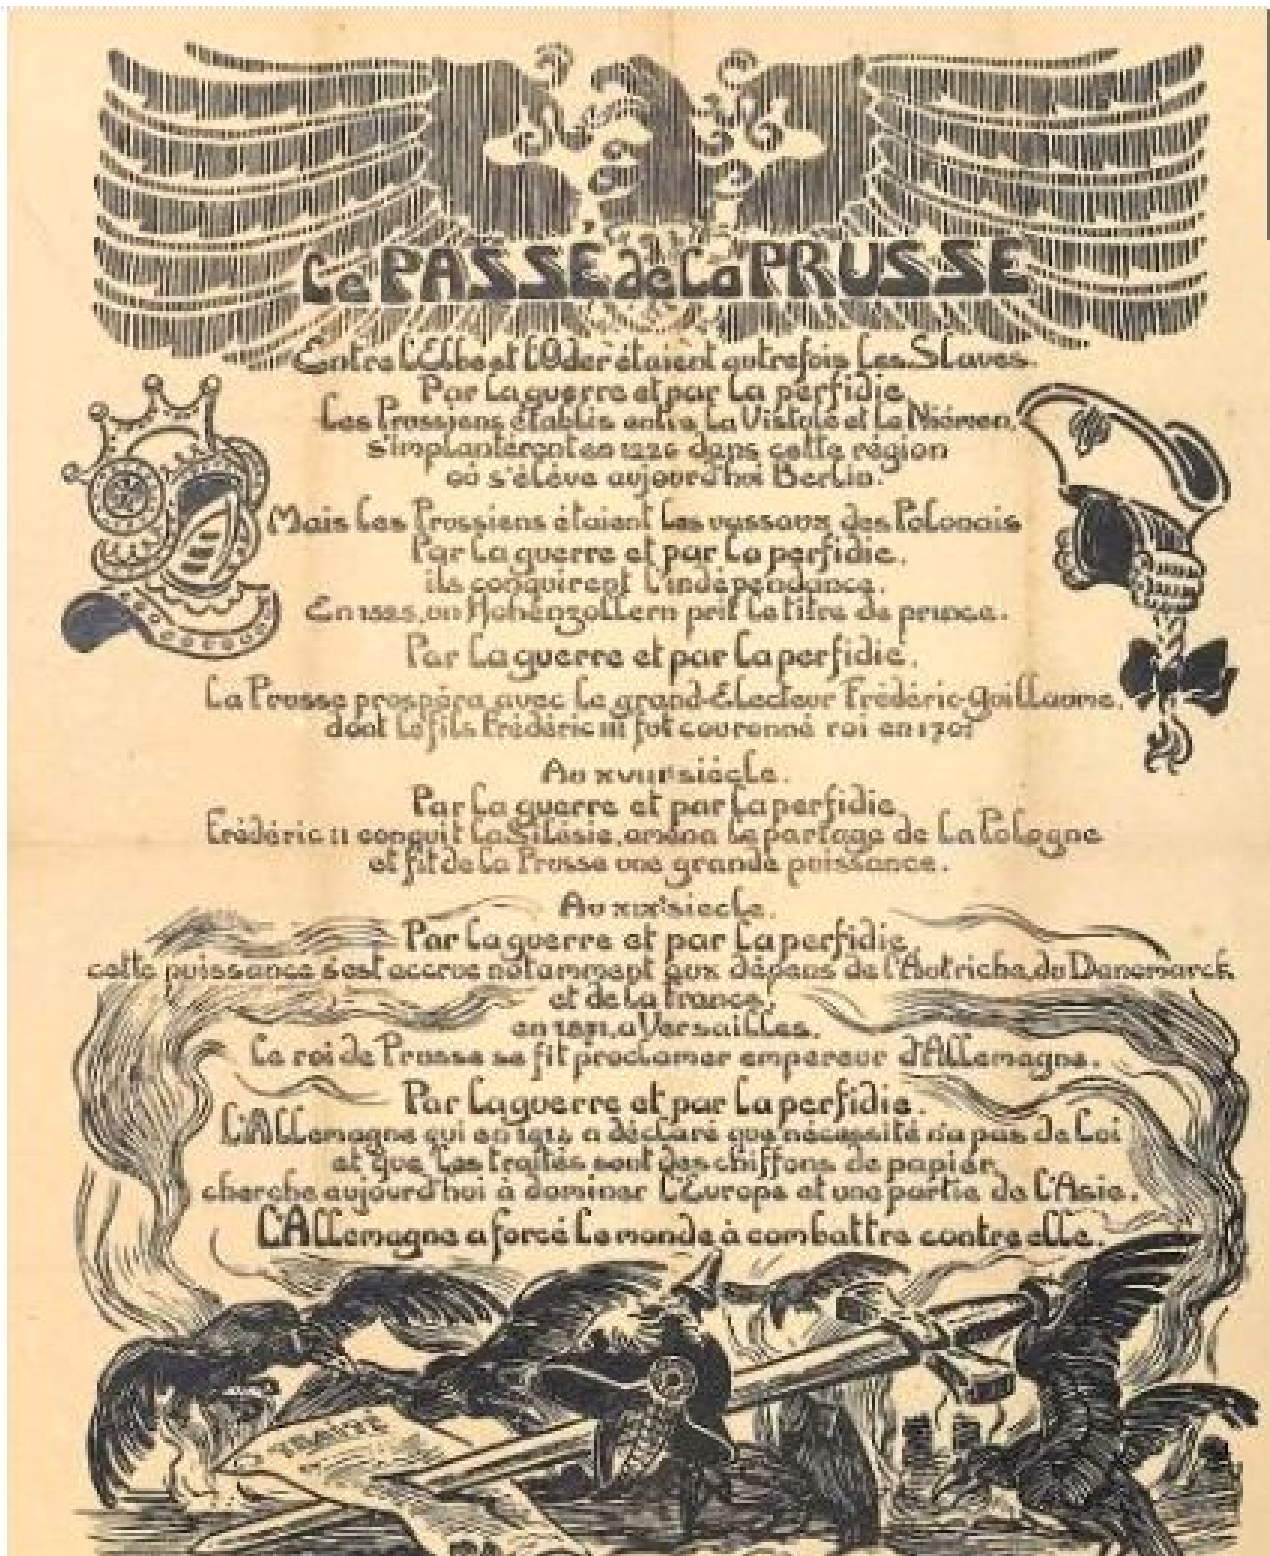 Le PASSE de La PRUSSE
Entre l'Elbe et l'Oder étaient autrefois les Slaves.
Par la guerre et par la perfidie,
Les Prussiens établis entre La Vistule et Le Niémen,
s'implantèrent en 1226 dans cette région
où s'élève aujourd'hui Berlin.
Mais les Prussiens étaient les vassaux des Polonais
Par la guerre et par la perfidie,
ils conquirent l'indépendance.
En un Hohenzollern prit le titre de prince.
Par la guerre et par la perfidie.
La Prusse prospéra avec Le grand-Électeur Frédéric-Guillaume,
dont le fils Frédéric III fut couronné roi en 1701
Au XVIIIe siècle.
Par la guerre et par la perfidie
Frédéric II conquit la Silésie, amena le partage de La Pologne
et fit de La Prusse une grande puissance.
Au XIXe siècle.
Par la guerre et par la perfidie
cette puissance s'est accrue notamment aux dépens de l'Autriche, du Danemarck
et de La France,
en 1871, a Versailles.
Le roi de Prusse se fit proclamer empereur d'Allemagne.
Par la guerre et par la perfidie.
L'Allemagne qui en 1914 a déclaré que nécessité n'a pas de Loi
et que les traités sont des chiffons de papier,
cherche aujourd'hui à dominer l'Europe et une partie de l'Asie.
L'Allemagne a forcé le monde à combattre contre elle.
TRAITÉ